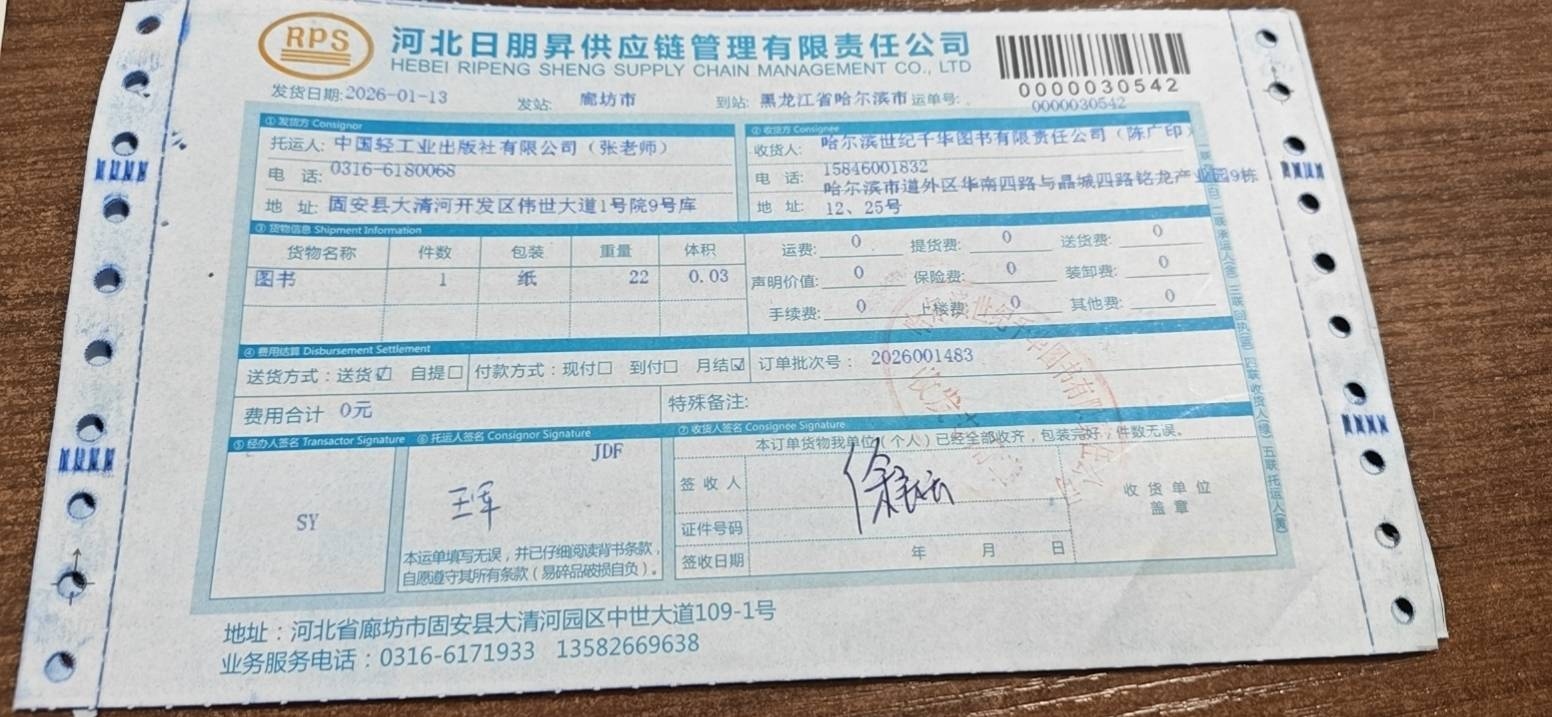 RPS
河北日朋昇供应链管理有限责任公司
HEBEI RIPENG SHENG SUPPLY CHAIN MANAGEMENT CO., LTD
0000030542
发货日期:2026-01-13 发站: 廊坊市 到站: 黑龙江省哈尔滨市 运单号: 0000030542
① 发货方 Consignor
托运人: 中国轻工业出版社有限公司（张老师）
电 话: 0316-6180068
地 址: 固安县大清河开发区伟世大道1号院9号库
② 收货方 Consignee
收货人: 哈尔滨世纪千华图书有限责任公司（陈广印）
电 话: 15846001832
地 址: 哈尔滨市道外区华南四路与晶城四路铭龙产业园9栋
12、25号
③ 货物信息 Shipment Information
货物名称 件数 包装 重量 体积
图书 1 纸 22 0.03
运费: 0 提货费: 0 送货费: 0
声明价值: 0 保险费: 0 装卸费: 0
手续费: 0 上楼费: 0 其他费: 0
④ 费用结算 Disbursement Settlement
送货方式：送货☑ 自提☐ 付款方式：现付☐ 到付☐ 月结☑ 订单批次号： 2026001483
费用合计 0元 特殊备注:
⑤ 经办人签名 Transactor Signature
SY
⑥ 托运人签名 Consignor Signature
JDF
本运单填写无误，并已仔细阅读背书条款，
自愿遵守其所有条款（易碎品破损自负）。
⑦ 收货人签名 Consignee Signature
本订单货物我单位（个人）已经全部收齐，包装完好，件数无误。
签 收 人
证件号码
签收日期 年 月 日
收 货 单 位
盖 章
地址：河北省廊坊市固安县大清河园区中世大道109-1号
业务服务电话：0316-6171933 13582669638